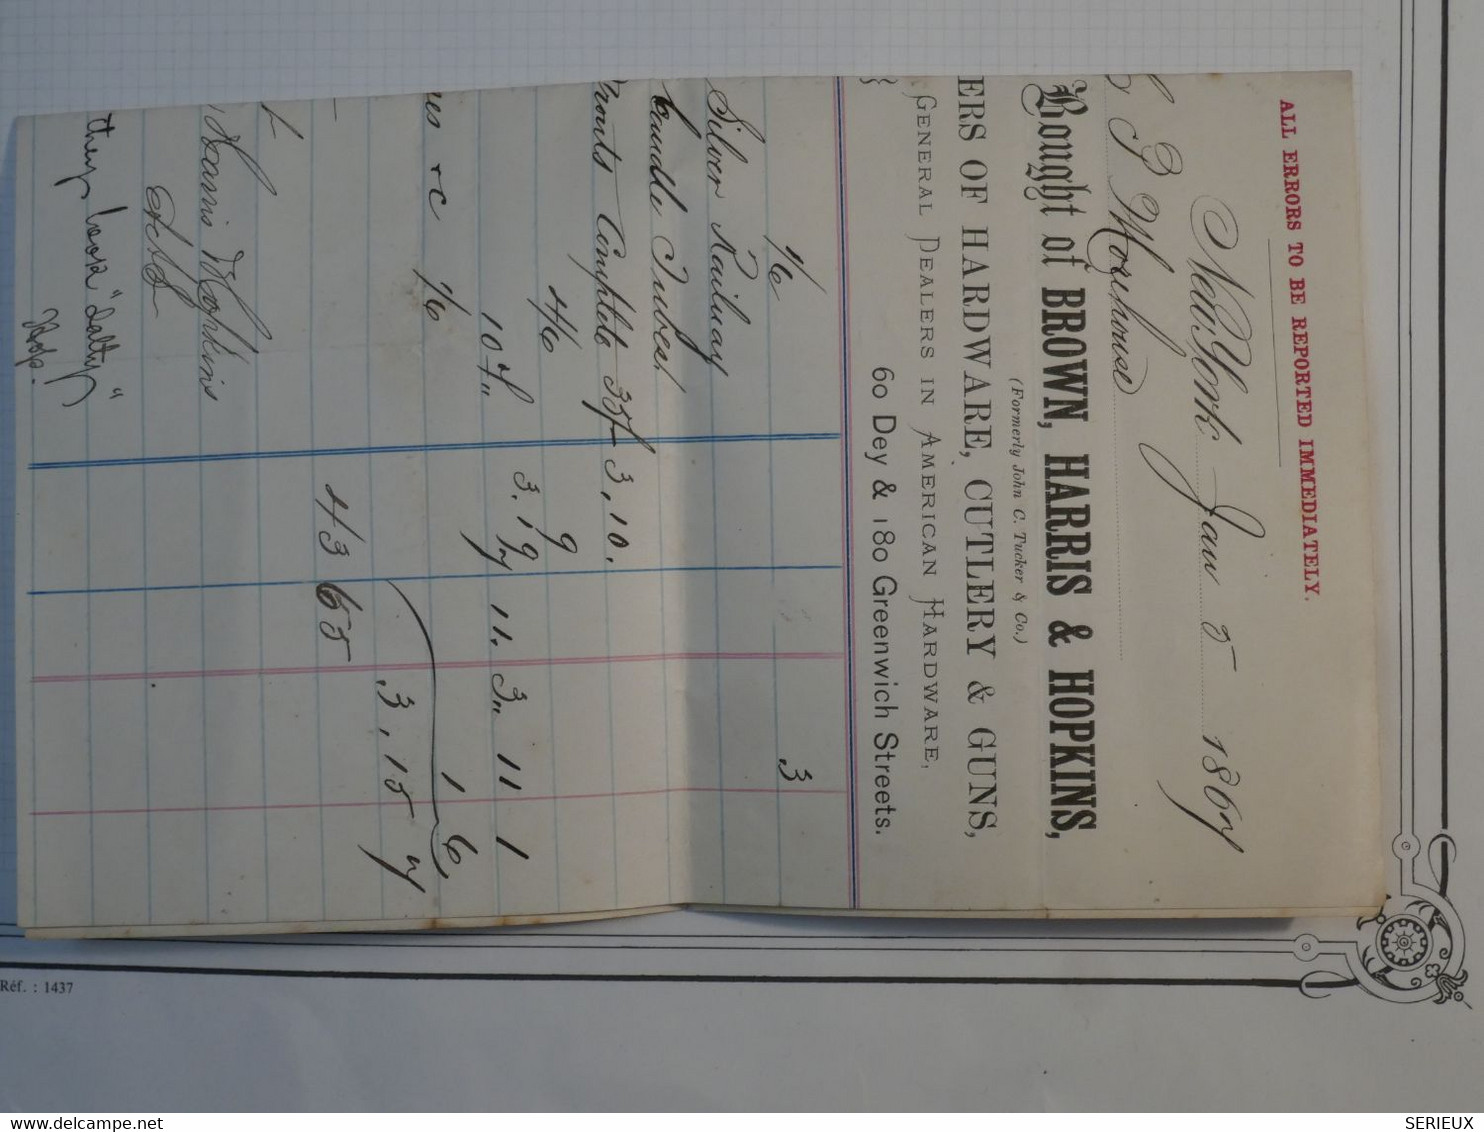 ALL ERRORS TO BE REPORTED IMMEDIATELY.
New York Jan 5 1867
P Morehouse
Bought of BROWN, HARRIS & HOPKINS,
(Formerly John C. Tucker & Co.)
ERS OF HARDWARE, CUTLERY & GUNS,
GENERAL DEALERS IN AMERICAN HARDWARE,
60 Dey & 180 Greenwich Streets.
1/6 3
Silver Railway
Candle Tubes
Complete 35/ 3,10.
4/6 9
3.19 11.3 11 1
&c 1/6 1 6
3,15
43 65
Harris Hopkins
they look "Salty"
Réf. : 1437
delcampe.net
SERIEUX